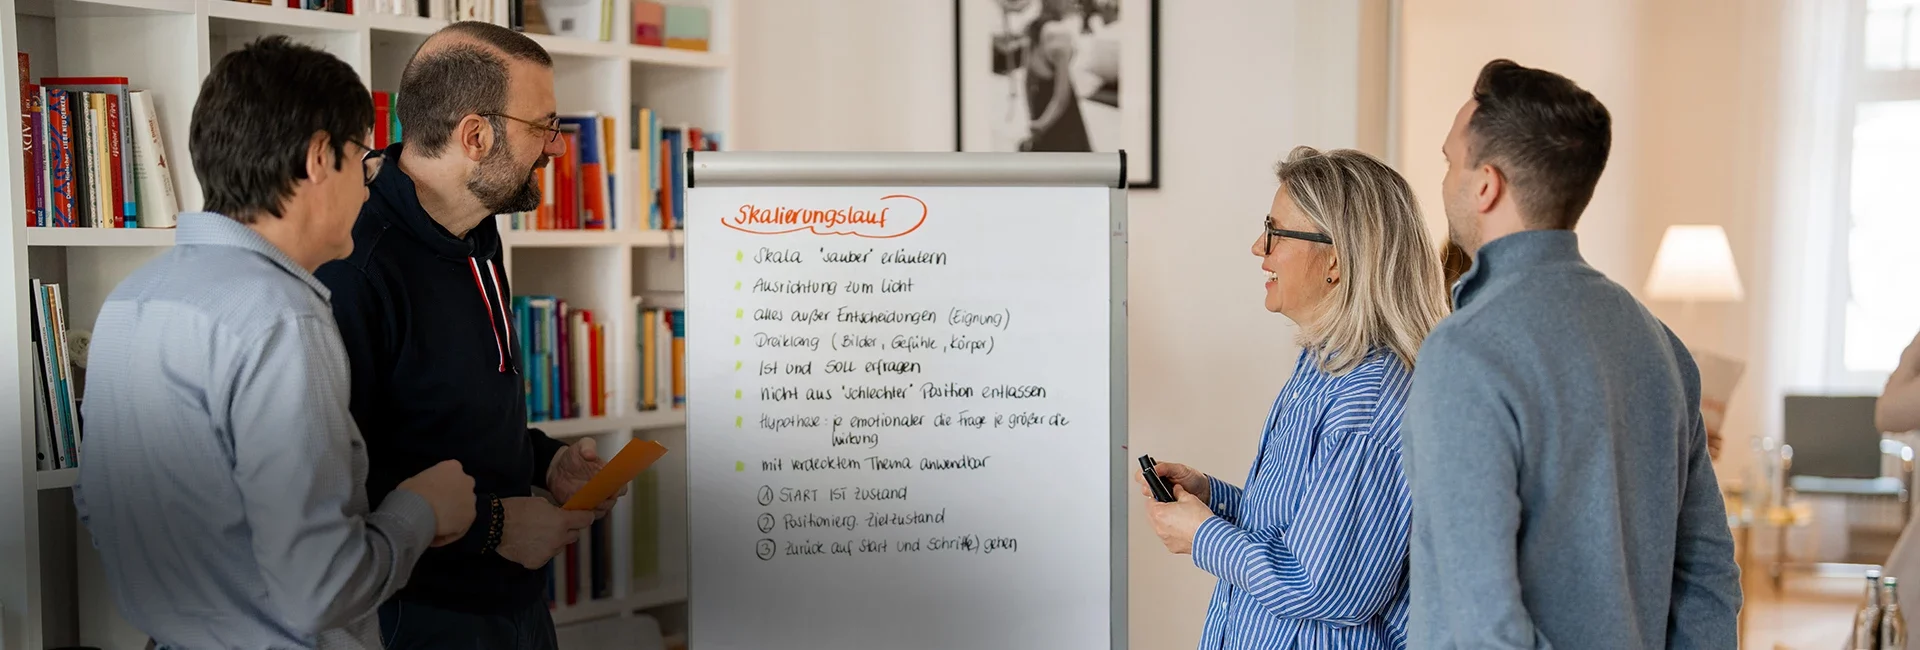 Skalierungslauf
Skala "sauber" erläutern
Ausrichtung zum Licht
alles außer Entscheidungen (Eignung)
Dreiklang (Bilder, Gefühle, Körper)
Ist und SOLL erfragen
nicht aus "schlechter" Position entlassen
Hypothese: je emotionaler die Frage je größer die
Wirkung
mit verdecktem Thema anwendbar
① START IST Zustand
② Positionierg. Zielzustand
③ Zurück auf Start und Schritt(e) gehen